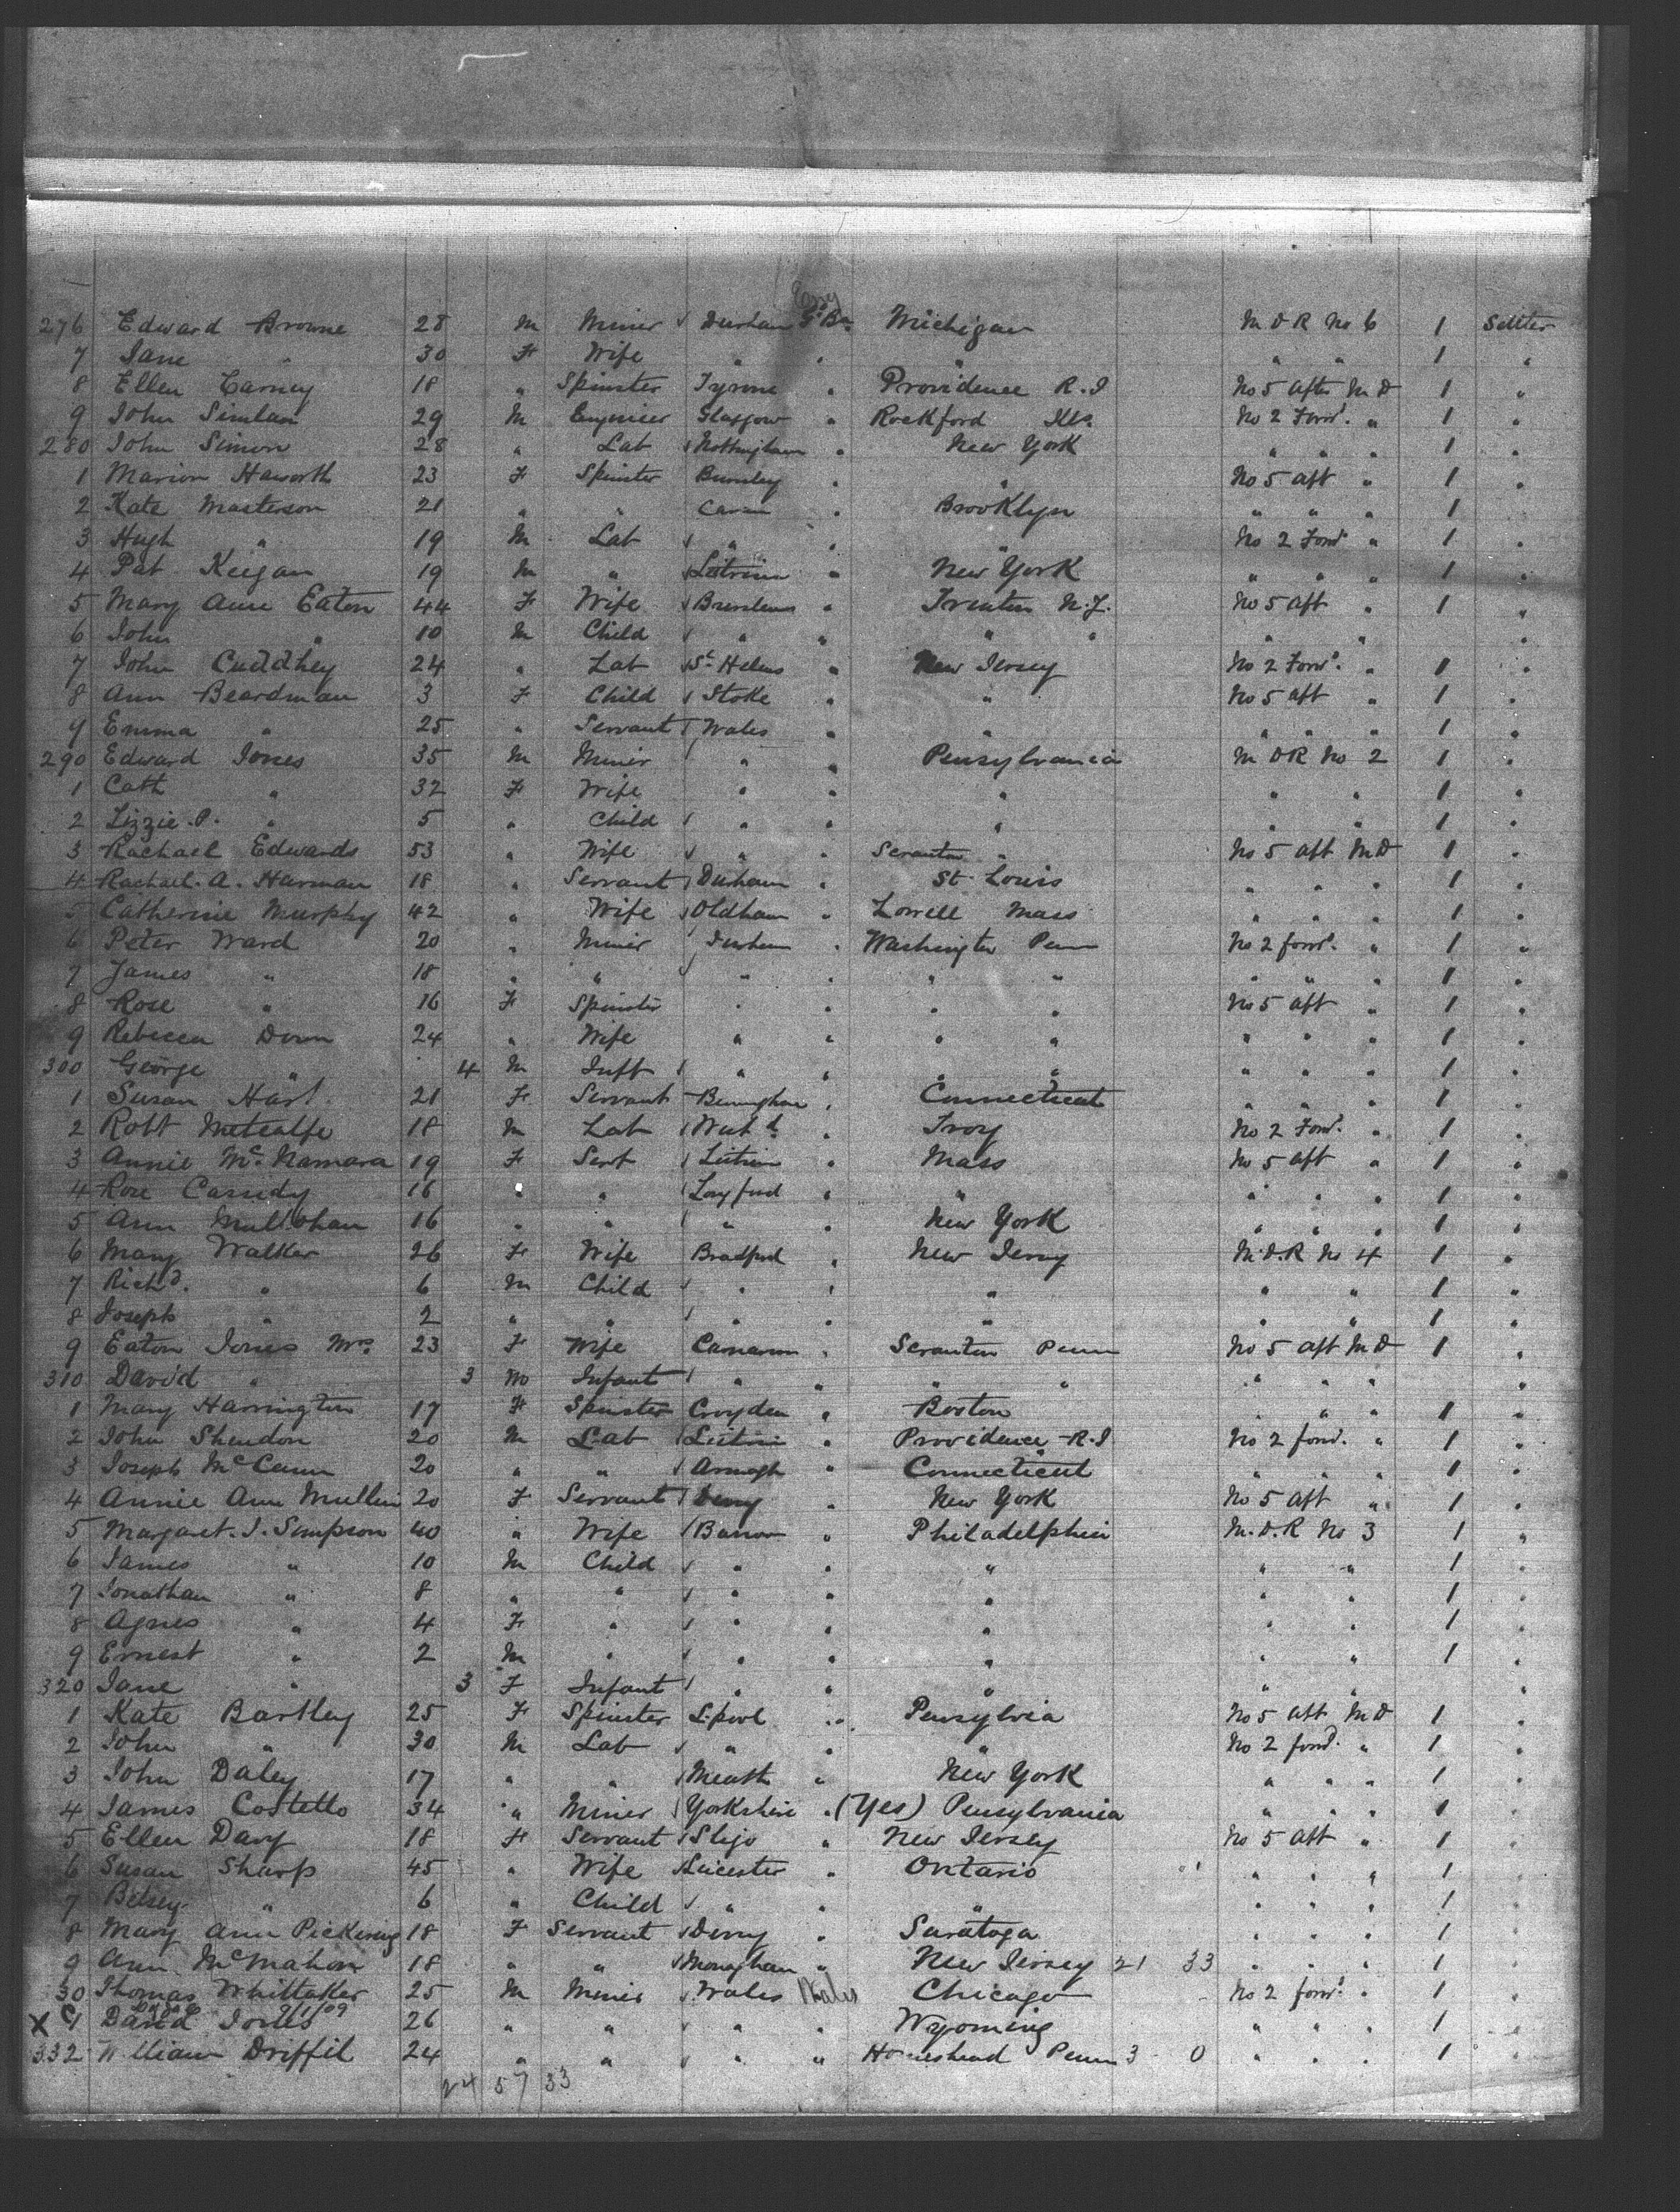 276 Edward Browne 28 M Miner Durham Gt Bn Michigan M D R No 6 1 Settler
7 Jane " 30 F Wife " " " " " 1 "
8 Ellen Carney 18 " Spinster Tyrone " Providence R.I No 5 after M D 1 "
9 John 29 M Engineer Glasgow " Rockford Ills. No 2 Forrd. " 1 "
280 John Simon 28 " Lab Nottingham " New York " " " 1 "
1 Marion Haworth 23 F Spinster Burnley " " No 5 aft " 1 "
2 Kate Masterson 21 " " Cavan " Brooklyn " " " 1 "
3 Hugh " 19 M Lab " " " No 2 Forrd " 1 "
4 Pat Keegan 19 M " Leitrim " New York " " " 1 "
5 Mary Ann Eaton 44 F Wife Burslem " Trenton N.J. No 5 aft " 1 "
6 John " 10 M Child " " " " " " "
7 John Cuddhey 24 " Lab St Helens " New Jersey No 2 Forrd. " 1 "
8 Ann Beardman 3 F Child Stoke " " No 5 aft " 1 "
9 Emma " 25 " Servant Wales " " " " " 1 "
290 Edward Jones 35 M Miner " " Pensylvania M D R No 2 1 "
1 Cath " 32 F Wife " " " " " 1 "
2 Lizzie.P. " 5 " Child " " " " " 1 "
3 Rachael Edwards 53 " Wife " " Scranton " No 5 aft M D 1 "
4 Rachael.A. Harman 18 " Servant Durham " St Louis " " " 1 "
5 Catherine Murphy 42 " Wife Oldham " Lowell Mass " " " 1 "
6 Peter Ward 20 " Miner Durham " Washington Penn No 2 forrd. " 1 "
7 James " 18 " " " " " " " " " 1 "
8 Rose " 16 F Spinster " " " " No 5 aft " 1 "
9 Rebecca Down 24 " Wife " " " " " " " 1 "
300 George " 4 M Inft " " " " " " " 1 "
1 Susan Hart 21 F Servant " Connecticut " " " 1 "
2 Robt Metcalfe 18 M Lab " Troy No 2 Forrd. " 1 "
3 Annie McNamara 19 F Servt Leitrim " Mass No 5 aft " 1 "
4 Rose Cassidy 16 " " Longford " " " " " 1 "
5 Ann Mullohan 16 " " " " New York " " " 1 "
6 Mary Walker 26 F Wife Bradford " New Jersey M.D.R No 4 1 "
7 Richd. " 6 M Child " " " " " 1 "
8 Joseph " 2 " " " " " " " 1 "
9 Eaton Jones Mrs 23 F Wife Carnarvon " Scranton Penn No 5 aft M D 1 "
310 David " 3 M Infant " " " " " " " "
1 Mary Harrington 17 F Spinster Croyden " Boston " " " 1 "
2 John Sheridon 20 M Lab Leitrim " Providence R.I No 2 forrd. " 1 "
3 Joseph McCann 20 " " Armagh " Connecticut " " " 1 "
4 Annie Ann Mullin 20 F Servant Derry " New York No 5 aft " 1 "
5 Margaret.J. Simpson 40 " Wife Barrow " Philadelphia M.D.R No 3 1 "
6 James " 10 M Child " " " " " 1 "
7 Jonathan " 8 " " " " " " " 1 "
8 Agnes " 4 F " " " " " " 1 "
9 Ernest " 2 M " " " " " " 1 "
320 Jane " 3 F Infant " " " " " "
1 Kate Bartley 25 F Spinster L.pool " Pensylvia No 5 aft M D 1 "
2 John " 30 M Lab " " " No 2 forrd. " 1 "
3 John Daley 17 " " Meath " New York " " " 1 "
4 James Costello 34 " Miner Yorkshire " (Yes) Pensylvania " " " 1 "
5 Ellen Davy 18 F Servant Sligo " New Jersey No 5 aft " 1 "
6 Susan Sharp 45 " Wife Leicester " Ontario " " " 1 "
7 Betsey " 6 " Child " " " " " " 1 "
8 Mary Ann Pickering 18 F Servant Derry " Saratoga " " " 1 "
9 Ann McMahon 18 " " Monaghan " New Jersey 21 33 " " " 1 "
30 Thomas Whittaker 25 M Miner Wales Wales Chicago No 2 forrd. " 1 "
X 1 David Jones 26 " " " " Wyoming " " " 1 "
332 William Driffil 24 " " " " Homeshead Penn 3 0 " " " 1 "
24 57 33